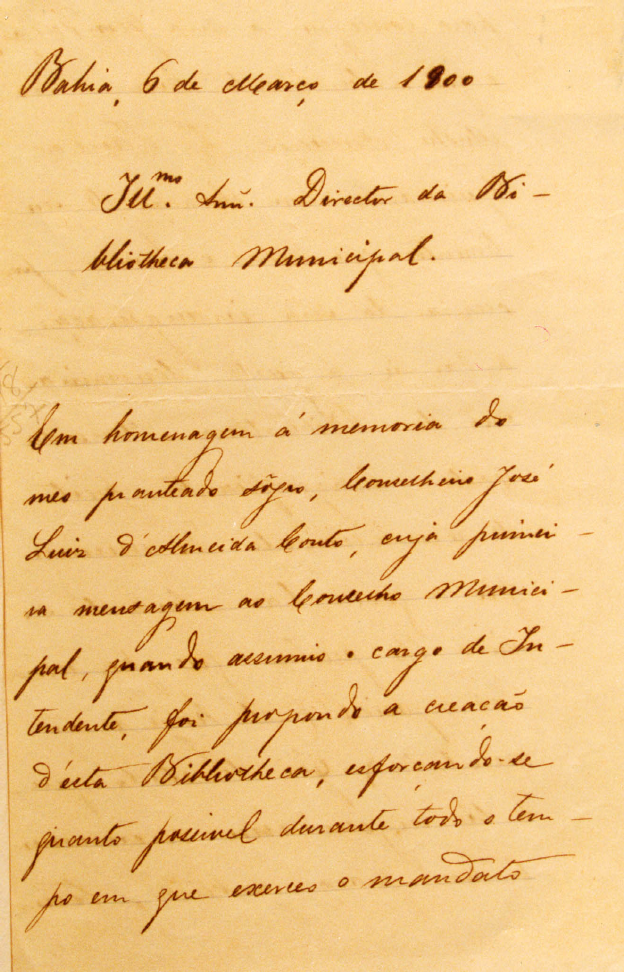 Bahia, 6 de Março, de 1900
Ill.mo Snr. Director da Bi-
bliotheca Municipal.
Em homenagem á memoria do
meo pranteado sôgro, Conselheiro José
Luiz d'Almeida Couto, cuja primei-
ra mensagem ao Concelho Munici-
pal, quando assumio o cargo de In-
tendente, foi propondo a creacão
d'ésta Bibliotheca, esforçando-se
quanto possivel durante todo o tem-
po em que exerceo o mandato